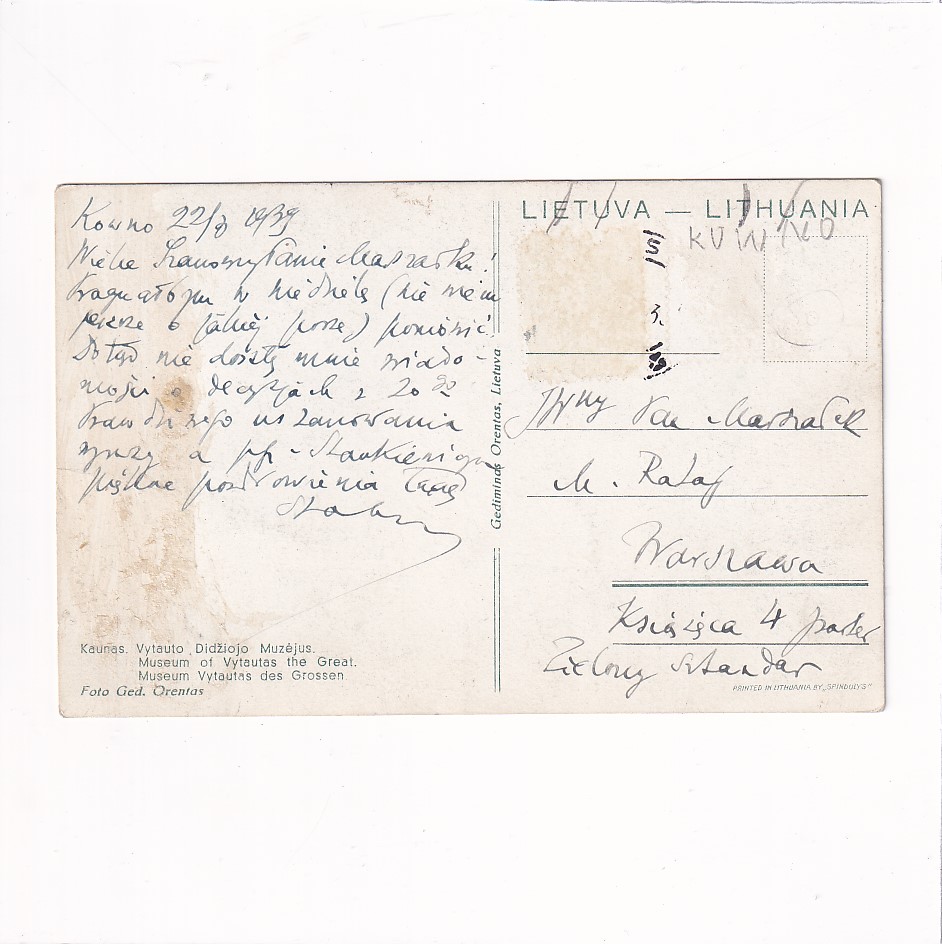 Kowno 22/3 1939
Wielce Szanowny Panie Marszałku!
Pragnąłbym w niedzielę (nie wiem
jeszcze o jakiej porze) pomówić.
Dotąd nie doszły mnie wiado-
mości o decyzjach z 20 go
Prawdziwego uszanowania
wyrazy a pp.
piękne pozdrowienia łączę
Kaunas. Vytauto Didžiojo Muzėjus.
Museum of Vytautas the Great.
Museum Vytautas des Grossen
Foto Ged. Orentas
Gediminas Orentas, Lietuva
LIETUVA — LITHUANIA
KOWNO
JWny Pan Marszałek
M. Rataj
Warszawa
Książęca 4 parter
Zielony Sztandar
PRINTED IN LITHUANIA BY „SPINDULYS"